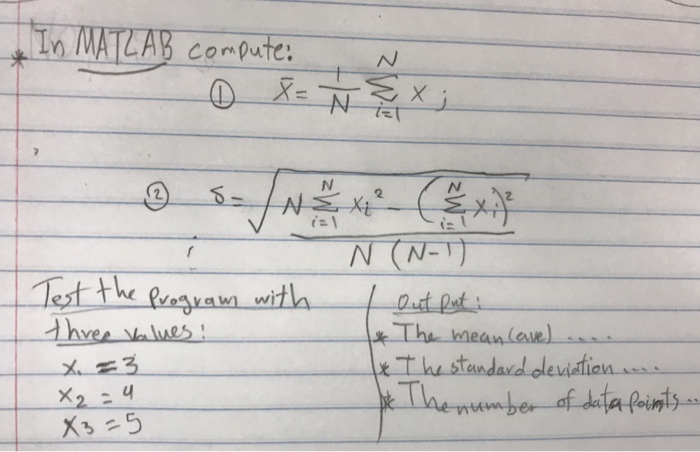 * In MATLAB compute:
① x̄ = 1/N Σ_{i=1}^{N} x ;
② δ = √( (N Σ_{i=1}^{N} xi² - (Σ_{i=1}^{N} xi)²) / (N (N-1)) )
Test the program with
three values:
x1 = 3
x2 = 4
x3 = 5
Out put:
* The mean (ave) ....
* The standard deviation ....
* The number of data points ..